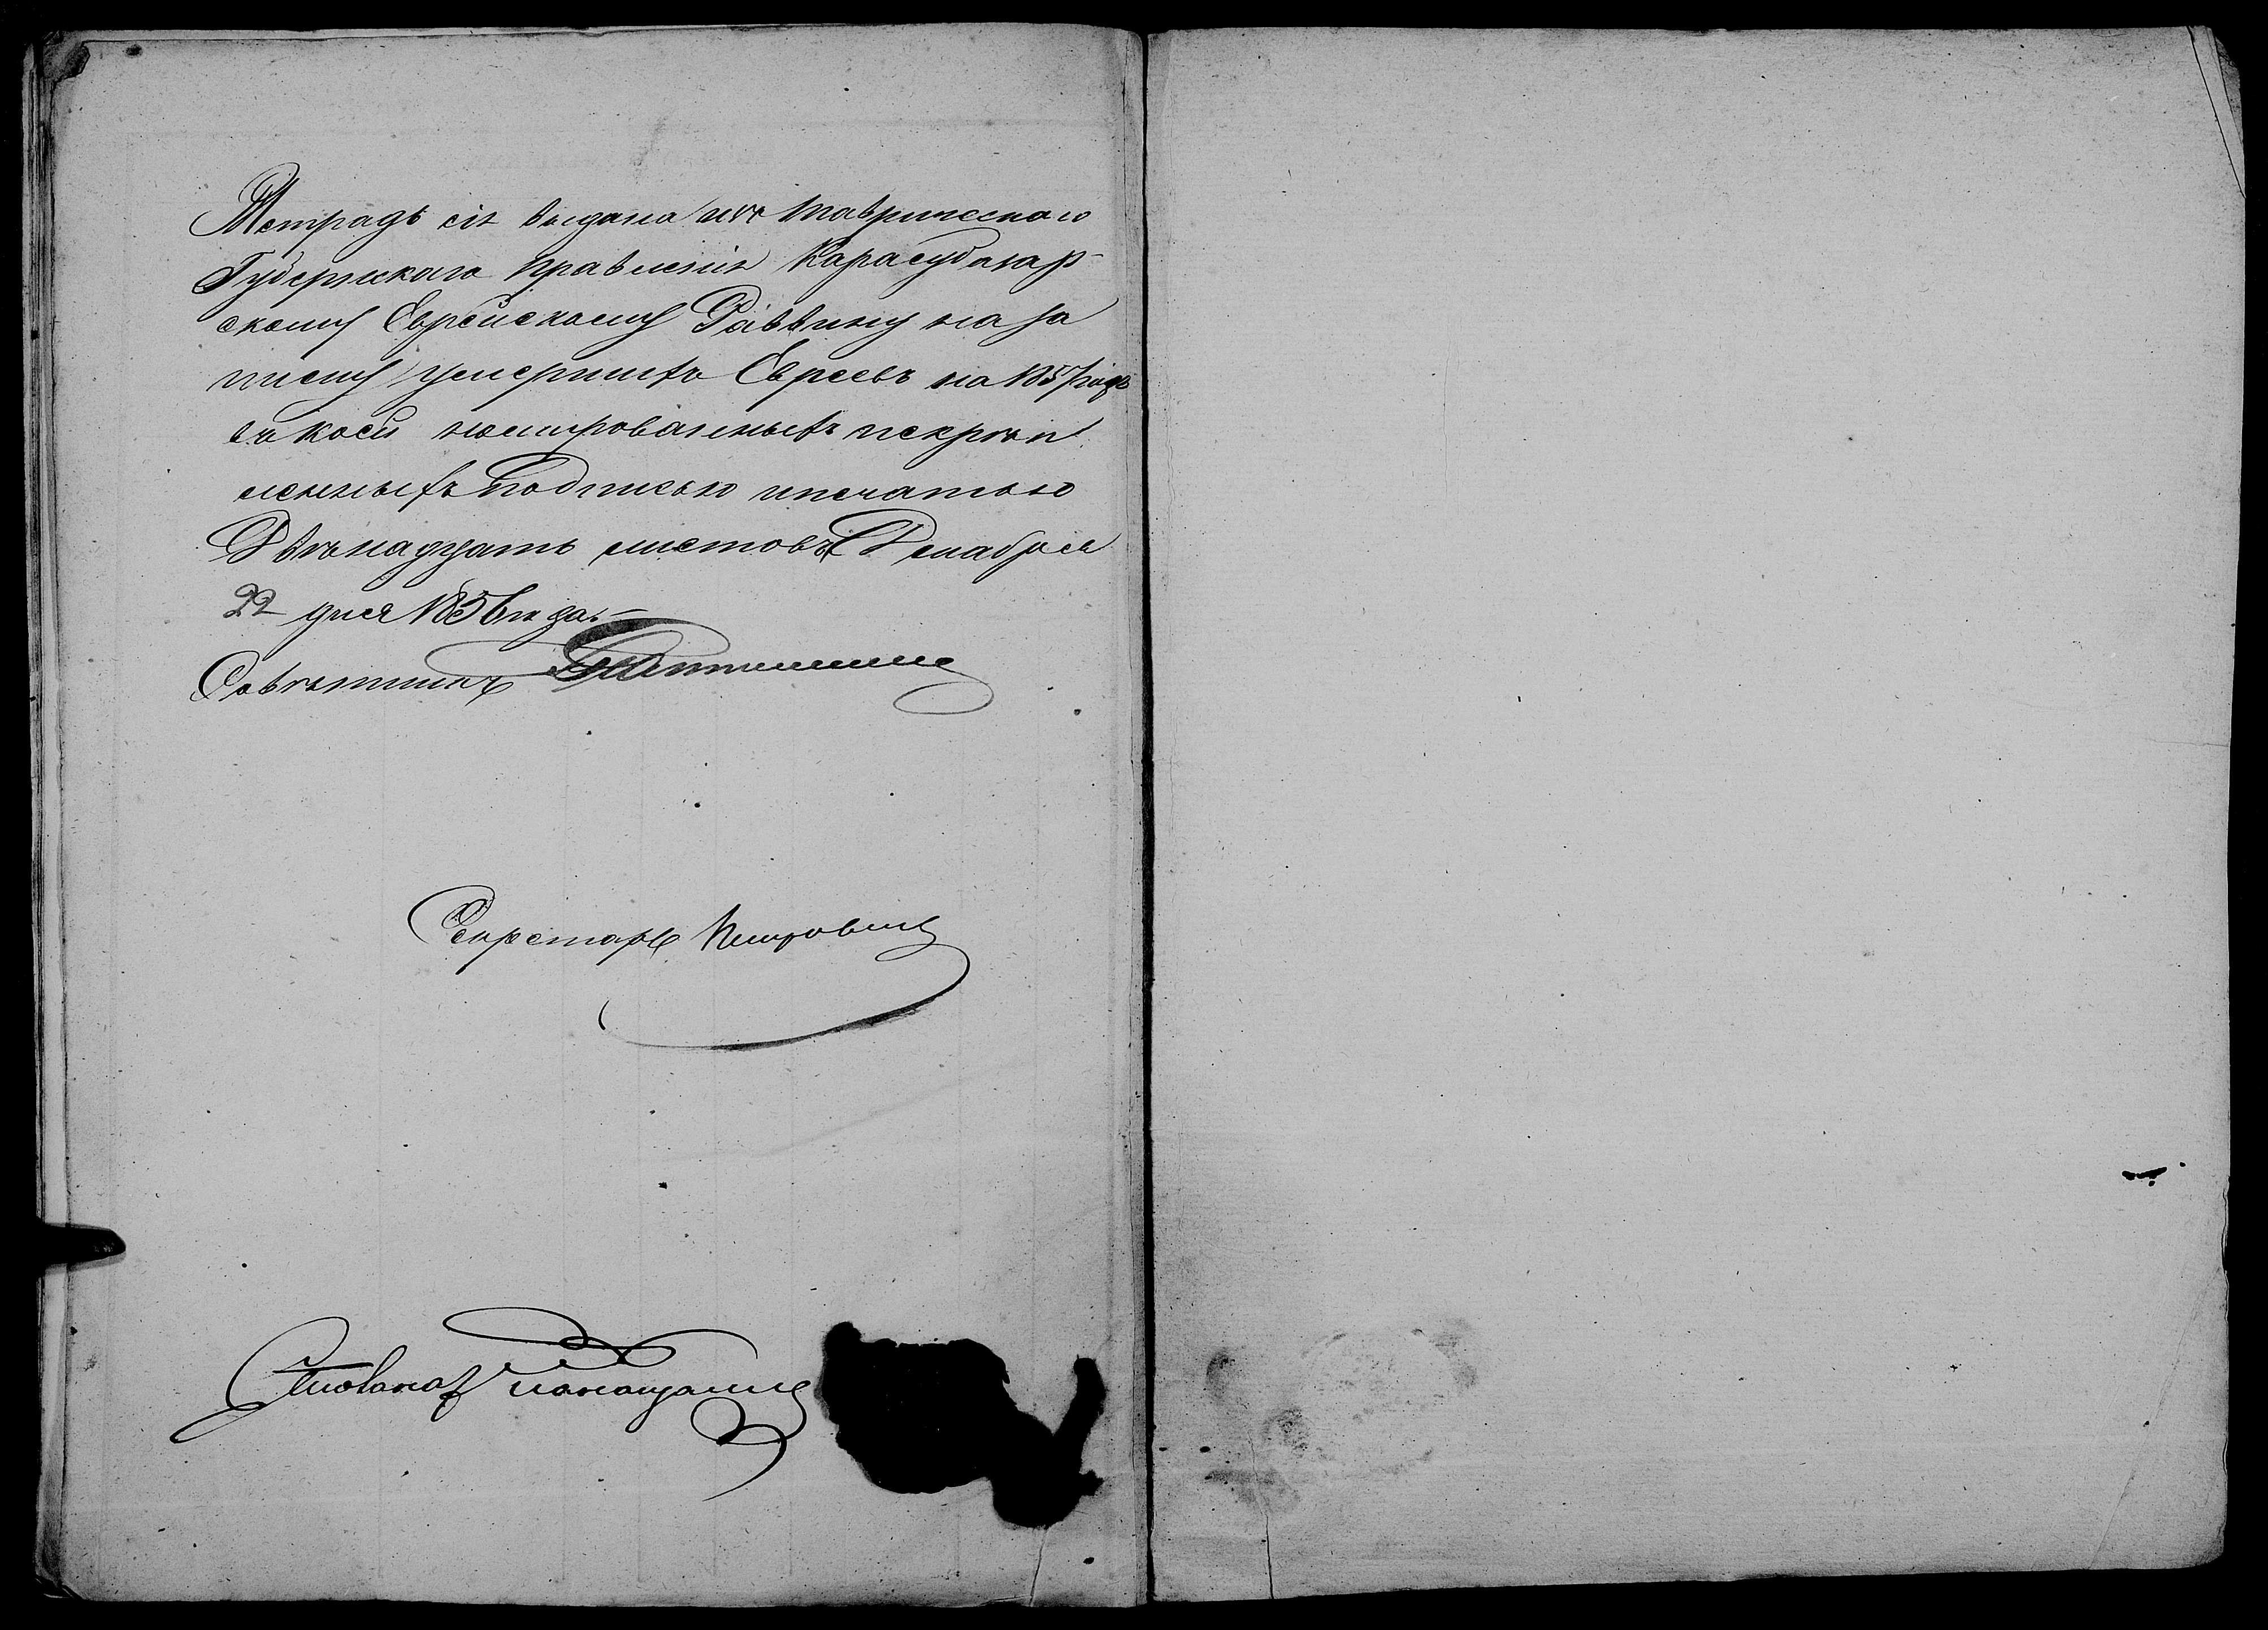 Тетрадь сія выдана изъ Таврическаго
Губернскаго Правленія Карасубазар-
скому Еврейскому Раввину на за
писку умершихъ Евреевъ на 1857 годъ
въ коей номированныхъ искреп
ленныхъ подписью ипечатью
Двѣнадцать листовъ Декабря
22 дня 1856 года.
Совѣтникъ
Секретарь